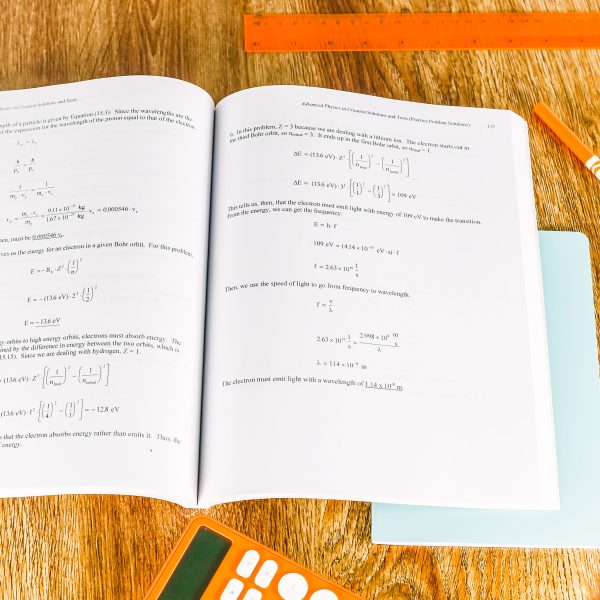 Physics in Creation Solutions and Tests
length of a particle is given by Equation (15.3). Since the wavelengths are the
the expression for the wavelength of the proton equal to that of the electron.
λₚ = λₑ
h/pₚ = h/pₑ
1/(mₚ·vₚ) = 1/(mₑ·vₑ)
vₚ = (mₑ/mₚ)·vₑ = (9.11×10⁻³¹ kg / 1.67×10⁻²⁷ kg)·vₑ = 0.000546·vₑ
must be 0.000546·vₑ.
gives us the energy for an electron in a given Bohr orbit. For this problem,
E = −Rₕ·Z²·(1/n)²
E = −(13.6 eV)·2²·(1/2)²
E = −13.6 eV
orbits to high energy orbits, electrons must absorb energy. The
determined by the difference in energy between the two orbits, which is
(15.15). Since we are dealing with hydrogen, Z = 1.
= (13.6 eV)·Z²·[(1/n_final)² − (1/n_initial)²]
(13.6 eV)·1²·[(1/4)² − (1/1)²] = −12.8 eV
that the electron absorbs energy rather than emits it. Thus, the
energy.
Advanced Physics in Creation Solutions and Tests (Practice Problem Solutions) 135
6. In this problem, Z = 3 because we are dealing with a lithium ion. The electron starts out in
the third Bohr orbit, so n_initial = 3. It ends up in the first Bohr orbit, so n_final = 1.
ΔE = (13.6 eV)·Z²·[(1/n_final)² − (1/n_initial)²]
ΔE = (13.6 eV)·3²·[(1/1)² − (1/3)²] = 109 eV
This tells us, then, that the electron must emit light with energy of 109 eV to make the transition.
From the energy, we can get the frequency:
E = h·f
109 eV = (4.14×10⁻¹⁵ eV·s)·f
f = 2.63×10¹⁶ 1/s
Then, we use the speed of light to go from frequency to wavelength.
f = v/λ
2.63×10¹⁶ 1/s = (2.998×10⁸ m/s)/λ
λ = 1.14×10⁻⁸ m
The electron must emit light with a wavelength of 1.14 x 10⁻⁸ m.